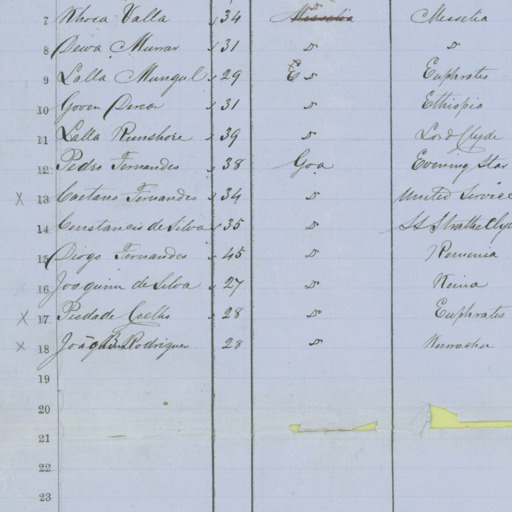 7 Khoca Valla 34 Messelia Messelia
8 Dewa Murrar 31 " "
9 Lalla Mungul 29 E " Euphrates
10 Gover Dewa 31 " Ethiopia
11 Lalla Runshore 39 " Lord Clyde
12 Pedro Fernandes 38 Goa Evening Star
X 13 Caetano Fernandes 34 " United Service
14 Constancio de Silva 35 " SS Strathclyde
15 Diogo Fernandes 45 " Roumenia
16 Joaquim de Silva 27 " Keina
X 17 Piedade Coelho 28 " Euphrates
X 18 João Rodrigues 28 " Kurrachee
19
20
21
22
23